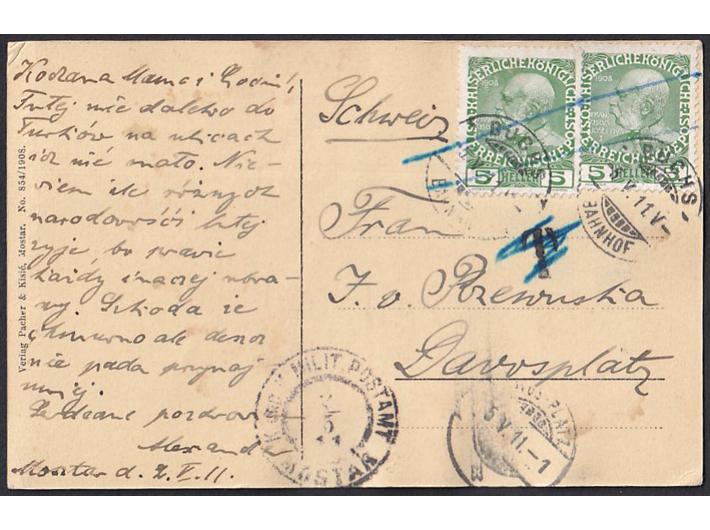 Kochana Mamo i
Tutaj nie daleko do
Turków na ulicach
ich nie mało. Nie
wiem ile różnych
narodowości tutaj
żyje, bo prawie
każdy inaczej ubra-
ny. Szkoda że
chmurno ale deszcz
nie pada przynaj
mniej.
Serdeczne pozdrow
Mostar d. 2.V.11.
Verlag Pacher & Kisić, Mostar. No. 854/1908.
Schweiz
Frau
J. v. Rzewuska
Davosplatz
1908
KAISERLICHE KÖNIGLICHE
ÖSTERREICHISCHE POST
5 HELLER 5
1908
KAISERLICHE KÖNIGLICHE
ÖSTERREICHISCHE POST
5 HELLER 5
BUCHS
BUCHS
V.11.V-
BAHNHOF
T
MILIT. POSTAMT
MOSTAR
PLATZ
5.V.11.-1